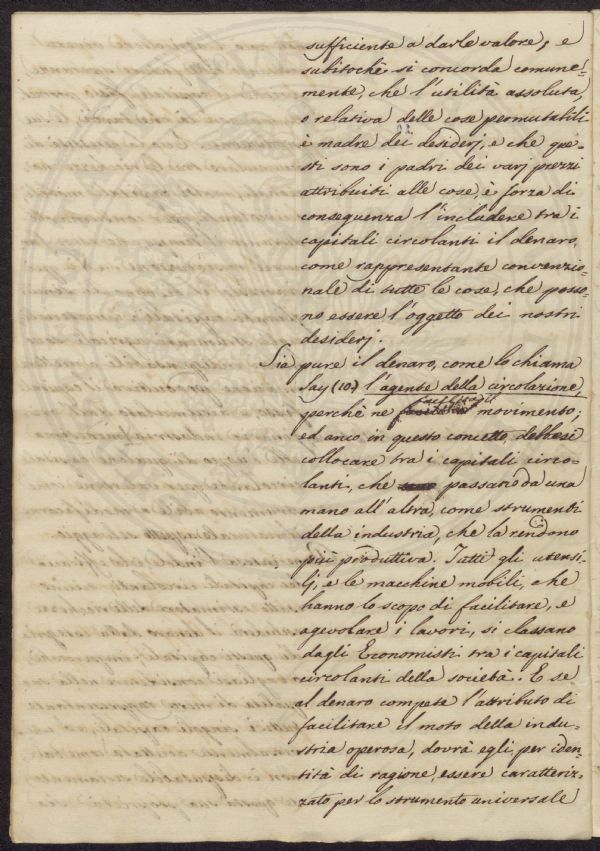 sufficiente a darle valore; e
subitochè si concorda comune-
mente, che l'utilità assoluta,
o relativa delle cose permutabili
è madre dei desiderj, e che que-
sti sono i padri dei varj prezzi
attribuiti alle cose, è forza di
conseguenza l'includere tra i
capitali circolanti il denaro,
come rappresentante convenzio-
nale di tutte le cose, che posso-
no essere l'oggetto dei nostri
desiderj.
Sia pure il denaro, come lo chiama
Say (10) l'agente della circolazione,
perchè ne movimento;
ed anco in questo concetto debbesi
collocare tra i capitali circo-
lanti, che passano da una
mano all'altra, come strumenti
della industria, che la rendono
più produttiva. Tutti gli utensi-
lj, e le macchine mobili, che
hanno lo scopo di facilitare, e
agevolare i lavori, si classano
dagli Economisti tra i capitali
circolanti della società. E se
al denaro compete l'attributo di
facilitare il moto della indu-
stria operosa, dovrà egli per iden-
tità di ragione, essere caratteriz-
zato per lo strumento universale